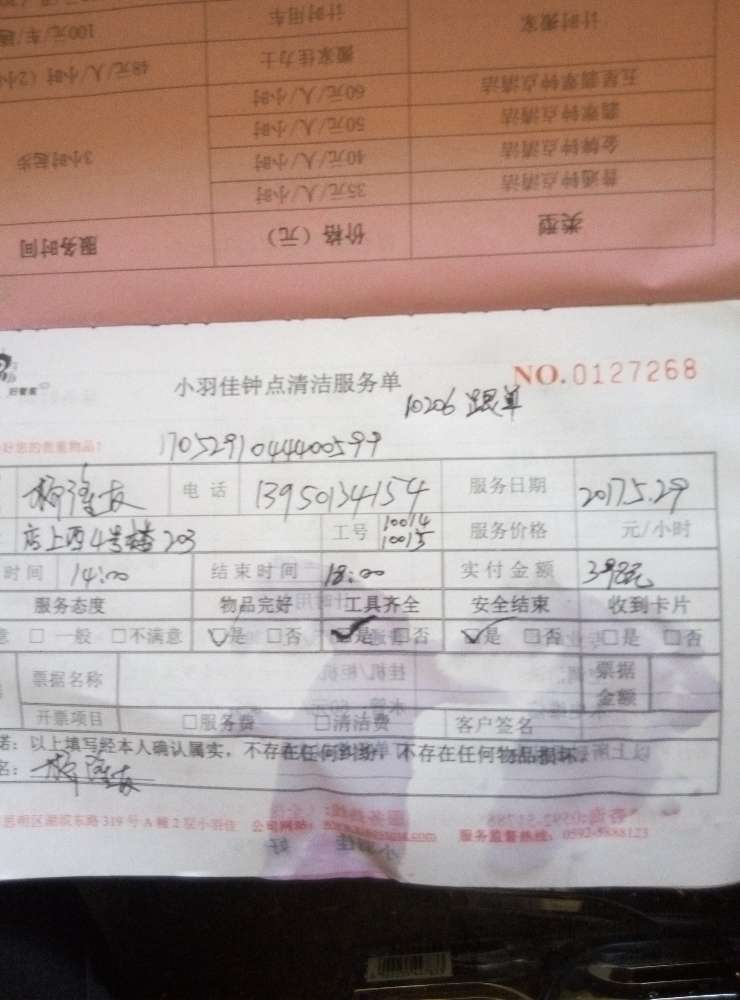 计时搬家 计时用车 100元/车/趟
搬家佳力士 48元/人/小时（2小
五星翡翠钟点清洁 60元/人/小时
翡翠钟点清洁 50元/人/小时
金牌钟点清洁 40元/人/小时 3小时起步
普通钟点清洁 35元/人/小时
类型 价格（元） 服务时间
好管家
小羽佳钟点清洁服务单 NO.0127268
10206 跟单
好您的贵重物品！ 1705291044400599
电话 13950134154 服务日期 2017.5.29
店上西4号楼203 工号 10014 10015 服务价格 元/小时
时间 14:00 结束时间 18:00 实付金额
服务态度 物品完好 工具齐全 安全结束 收到卡片
意 □一般 □不满意 ☑是 □否 ☑是 □否 ☑是 □否 □是 □否
票据名称 票据金额
开票项目 □服务费 □清洁费 客户签名
诺：以上填写经本人确认属实，不存在任何纠纷，不存在任何物品损坏。
名：
思明区湖滨东路319号A幢2层小羽佳 公司网站： 服务监督热线：0592-5888123